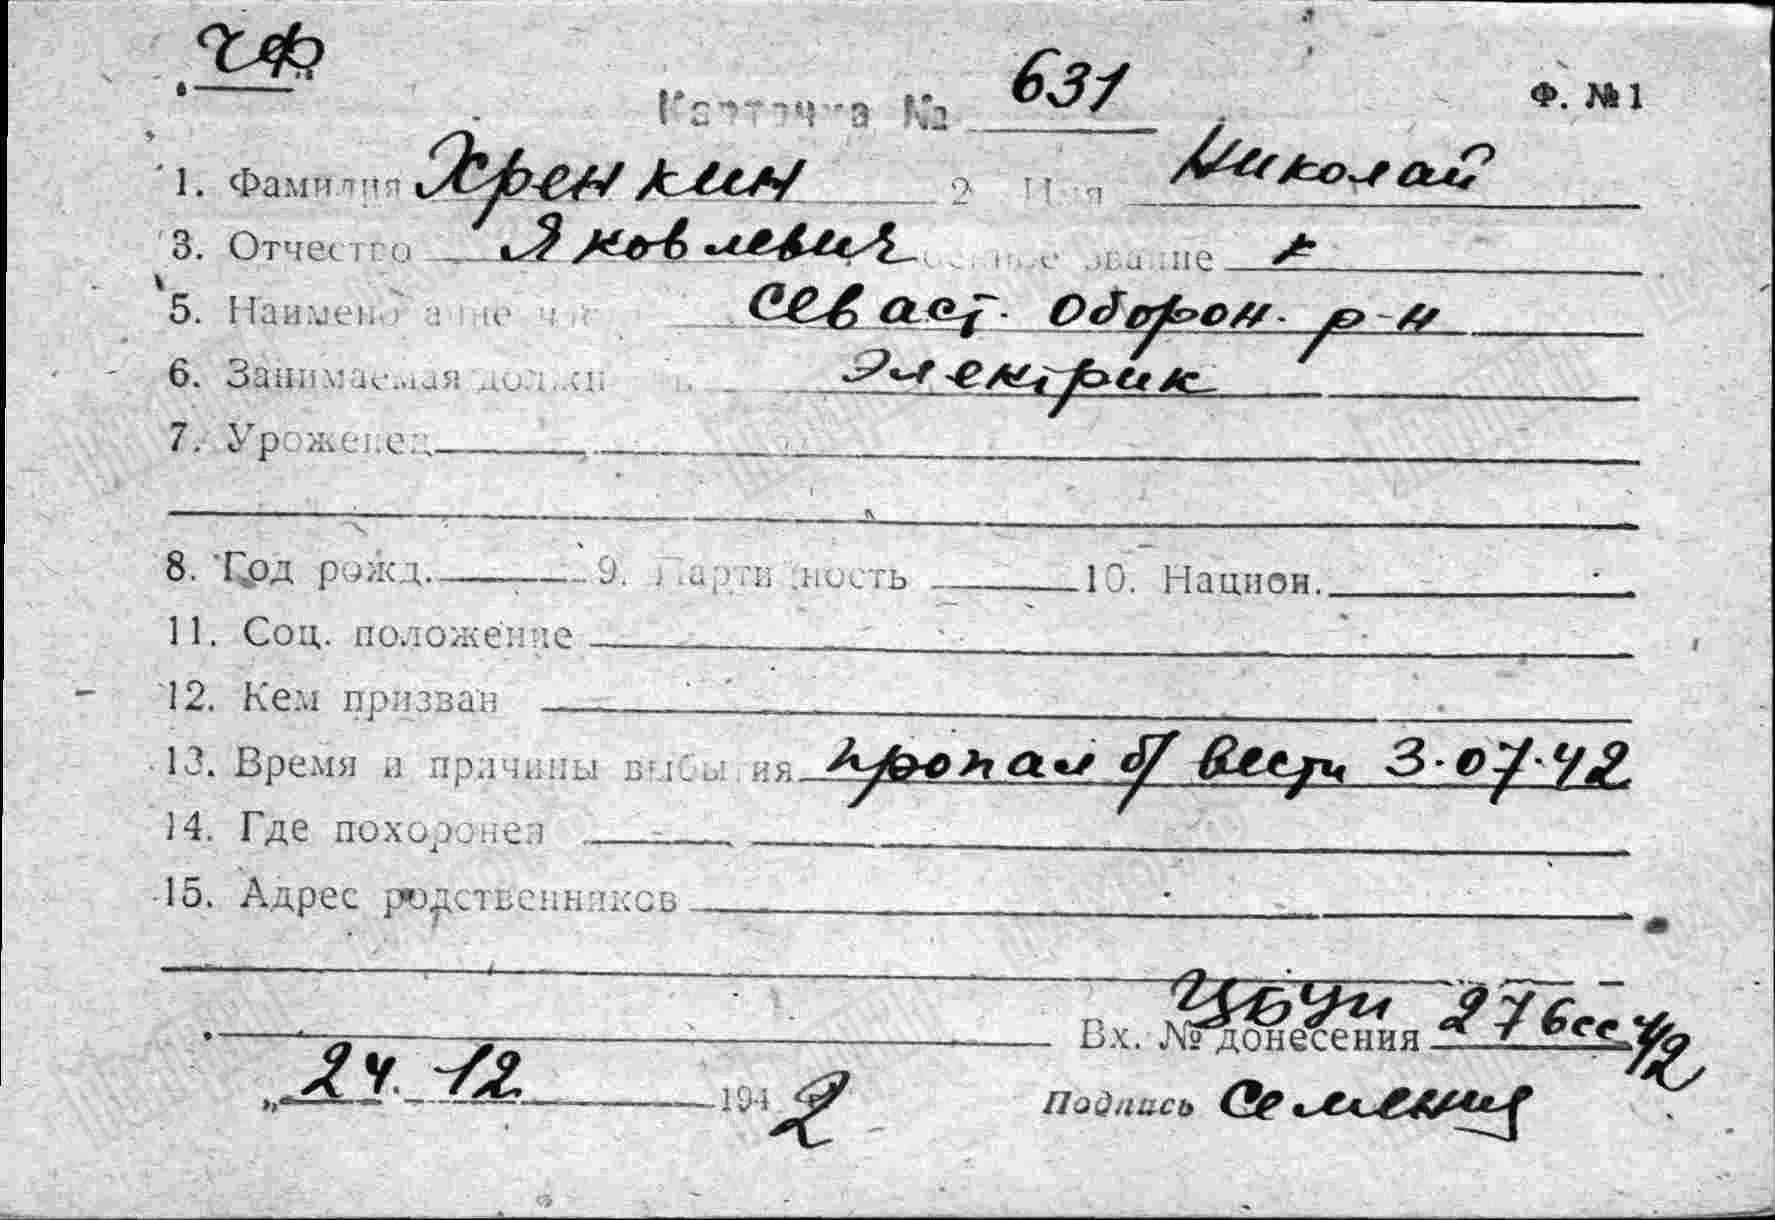 ЧФ
Карточка № 631 Ф. №1
1. Фамилия Хренкин 2 Имя Николай
3. Отчество Яковлевич звание к
5. Наименование Севаст. оборон. р-н
6. Занимаемая должн Электрик
7. Уроженец
8. Год рожд. 9. Партийность 10. Национ.
11. Соц. положение
12. Кем призван
13. Время и причины выбытия пропал б/вести 3.07.42
14. Где похоронен
15. Адрес родственников
Вх. № донесения 276сс 42
„ 24. 12. 1942
Подпись